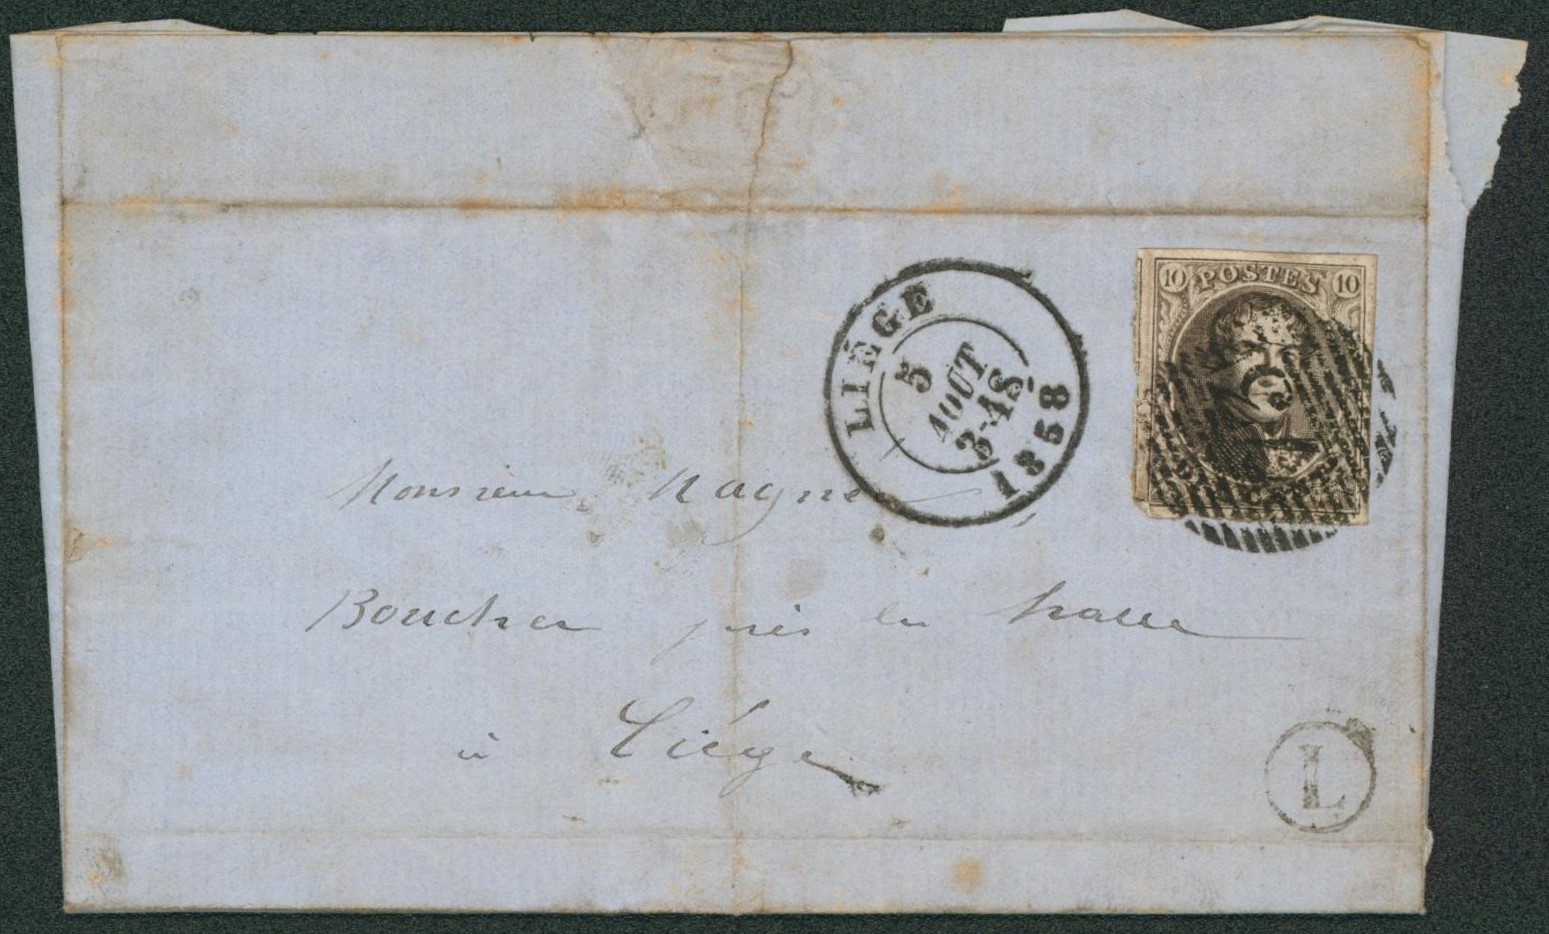 10 POSTES 10
LIÉGE
5
AOUT
3-4S
1858
Monsieur Magnée
Boucher près la halle
à Liége
L